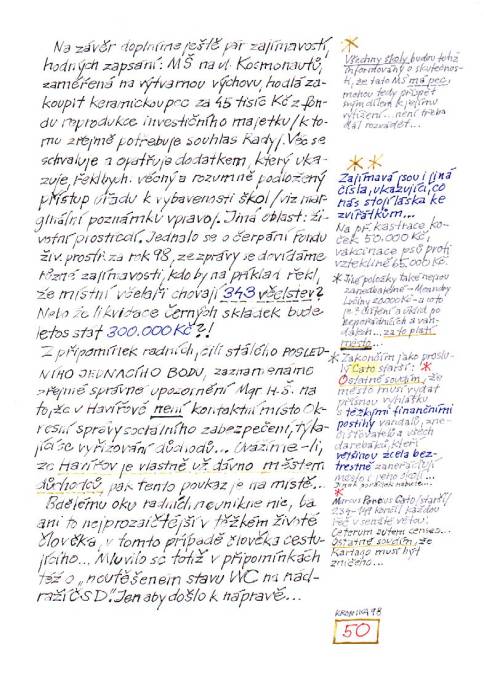 Na závěr doplníme ještě pár zajímavostí,
hodných zapsání: MŠ na ul. Kosmonautů,
zaměřená na výtvarnou výchovu, hodlá za-
koupit keramickou pec za 45 tisíc Kč z fon-
du reprodukce investičního majetku/k to-
mu zřejmě potřebuje souhlas Rady/. Věc se
schvaluje a opatřuje dodatkem, který uka-
zuje, řekl bych, věcný a rozumně podložený
přístup úřadu k vybavenosti škol/viz mar-
ginální poznámku vpravo/. Jiná oblast: ži-
votní prostředí. Jednalo se o čerpání Fondu
živ. prostř. za rok 98, ze zprávy se dovídáme
různé zajímavosti, kdo by na příklad řekl,
že místní včelaři chovají 343 včelstev?
Nebo že likvidace černých skládek bude
letos stát 300.000 Kč?!
Z připomínek radních, čili stálého POSLED-
NÍHO JEDNACÍHO BODU, zaznamenáme
zřejmě správné upozornění Mgr. H.Š. na
to, že v Havířově není kontaktní místo Ok-
resní správy sociálního zabezpečení, týka-
jící se vyřizování důchodů... Uvážíme-li,
že Havířov je vlastně už dávno městem
důchodců, pak tento poukaz je na místě...
Bdělému oku radních neunikne nic, ba
ani to nejprozaičtější v těžkém životě
člověka, v tomto případě člověka cestu-
jícího... Mluvilo se totiž v připomínkách
též o „neutěšeném stavu WC na nád-
raží ČSD". Jen aby došlo k nápravě...
Všechny školy budou totiž
informovány o skutečnos-
ti, že tato MŠ má pec,
mohou tedy přispět
svým dílem k jejímu
vytížení... není třeba
dál rozvádět...
Zajímavá jsou i jiná
čísla, ukazující, co
nás stojí láska ke
zvířátkům...
Na př. kastrace ko-
ček 50.000 Kč,
vakcinace psů proti
vzteklině 65.000 Kč.
Jiné položky také nejsou
zanedbatelné - Meandry
Lučiny 20.000 Kč - a toto
je čištění a úklid po
nepořádnících a van-
dalech... za to platí
město...
Zakončím jako proslu-
lý Cato starší:
Ostatně soudím, že
město musí vydat
přísnou vyhlášku
s těžkými finančními
postihy vandalů, zne-
čišťovatelů a všech
darebáků, kteří
většinou zcela bez-
trestně zaneřáďují
město i jeho okolí...
Marcus Porcius Cato/starší/
234-149 končil každou
řeč v senátě větou:
Ceterum autem censeo...
Ostatně soudím, že
Kartágo musí být
zničeno...
KRONIKA 98
50